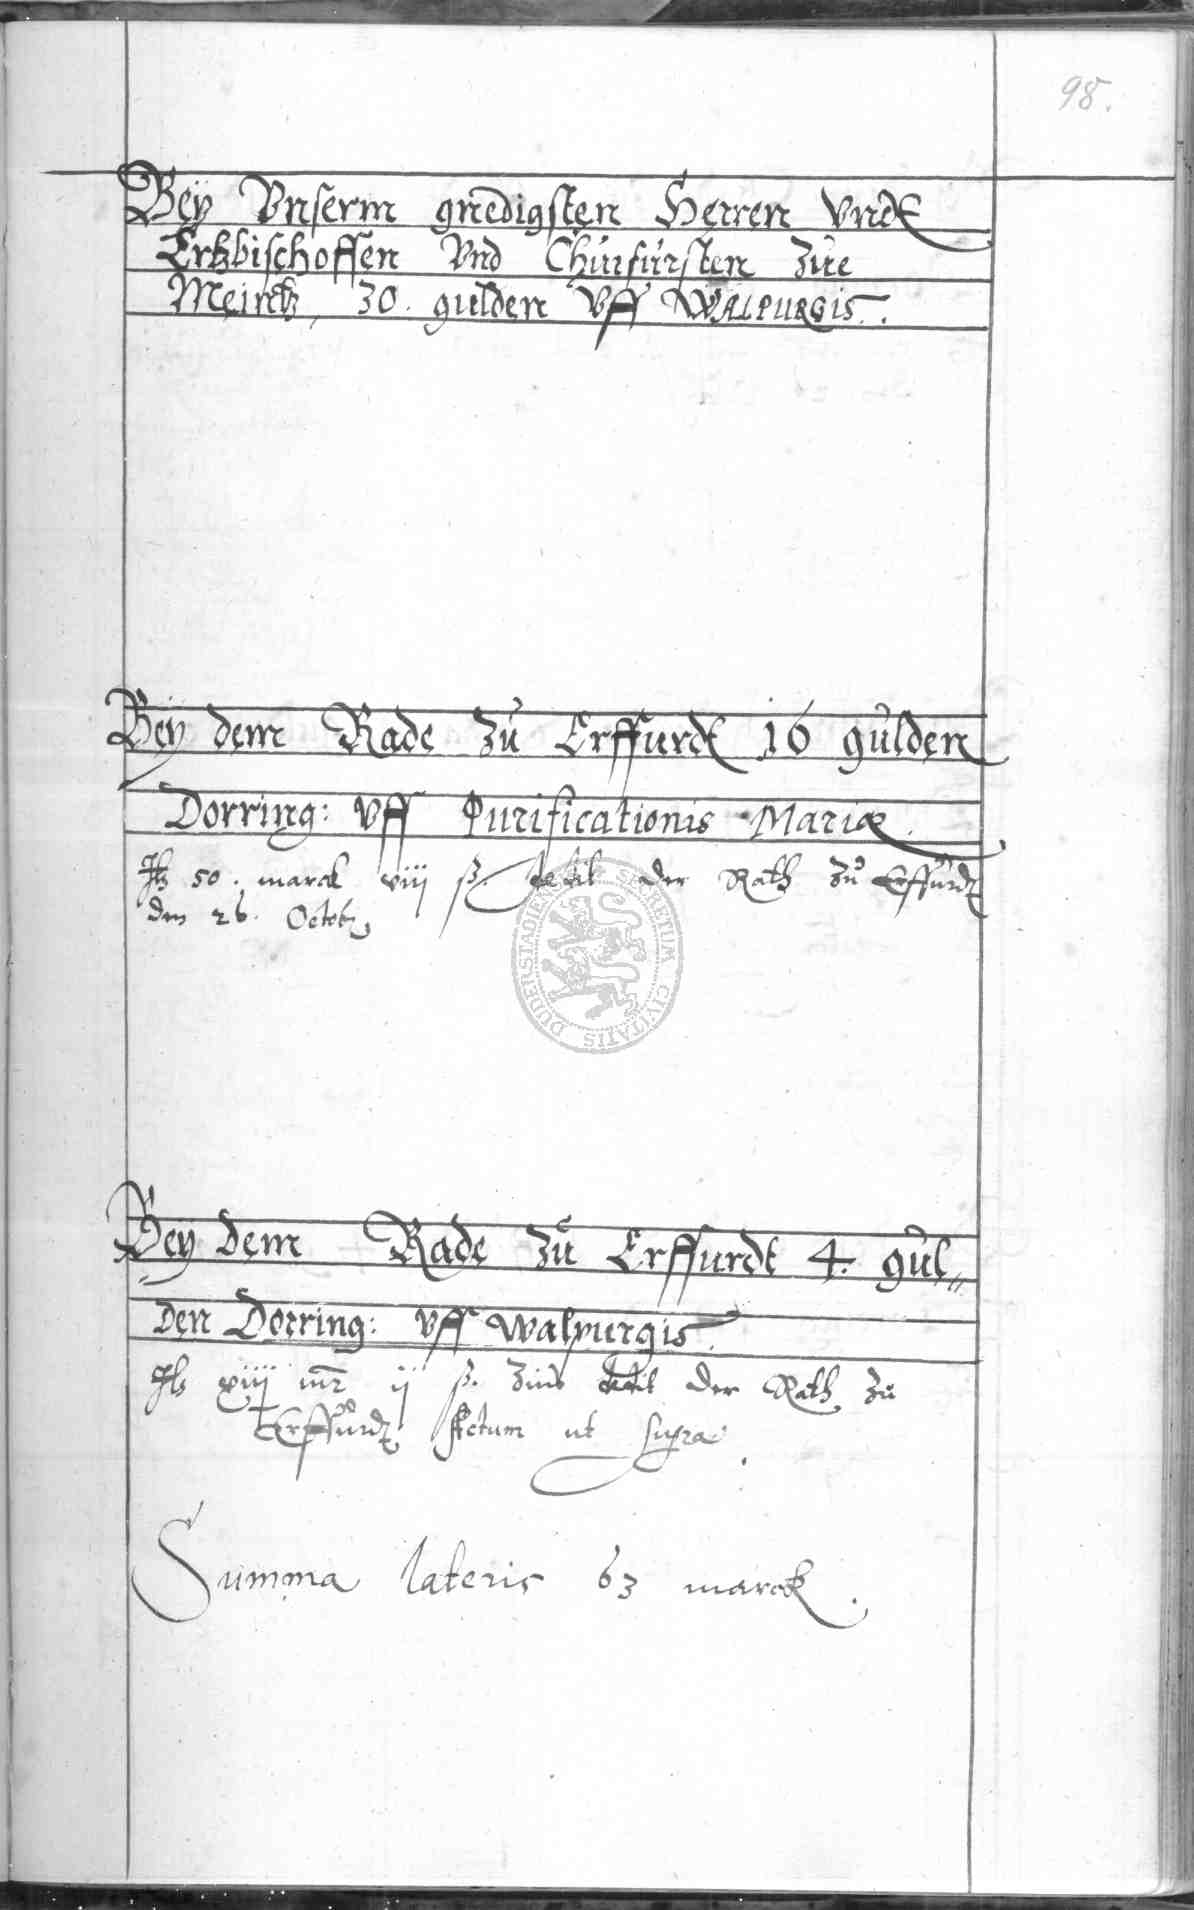 98.
Bey Vnserm gnedigsten Herren Vnd
Ertzbischoffen Vnd Churfursten Zue
Meintz, 30. gulden Vff WALPURGIS.
Bey dem Rade Zu Erffurd 16 gulden
Dorring: Vff Purificationis Mariæ.
It 50. marck viij ß. dedit der Rath Zu Erffurdt
den 26. Octob
DUDERSTADIENS SECRETUM CIVITATIS
Bey dem Rade Zu Erffurdt 4. gul„
den Dorring: Vff Walpurgis
It xiij mr ij ß. Zins dedit der Rath Zu
Erffurdt ut supra.
Summa lateris 63 marck.